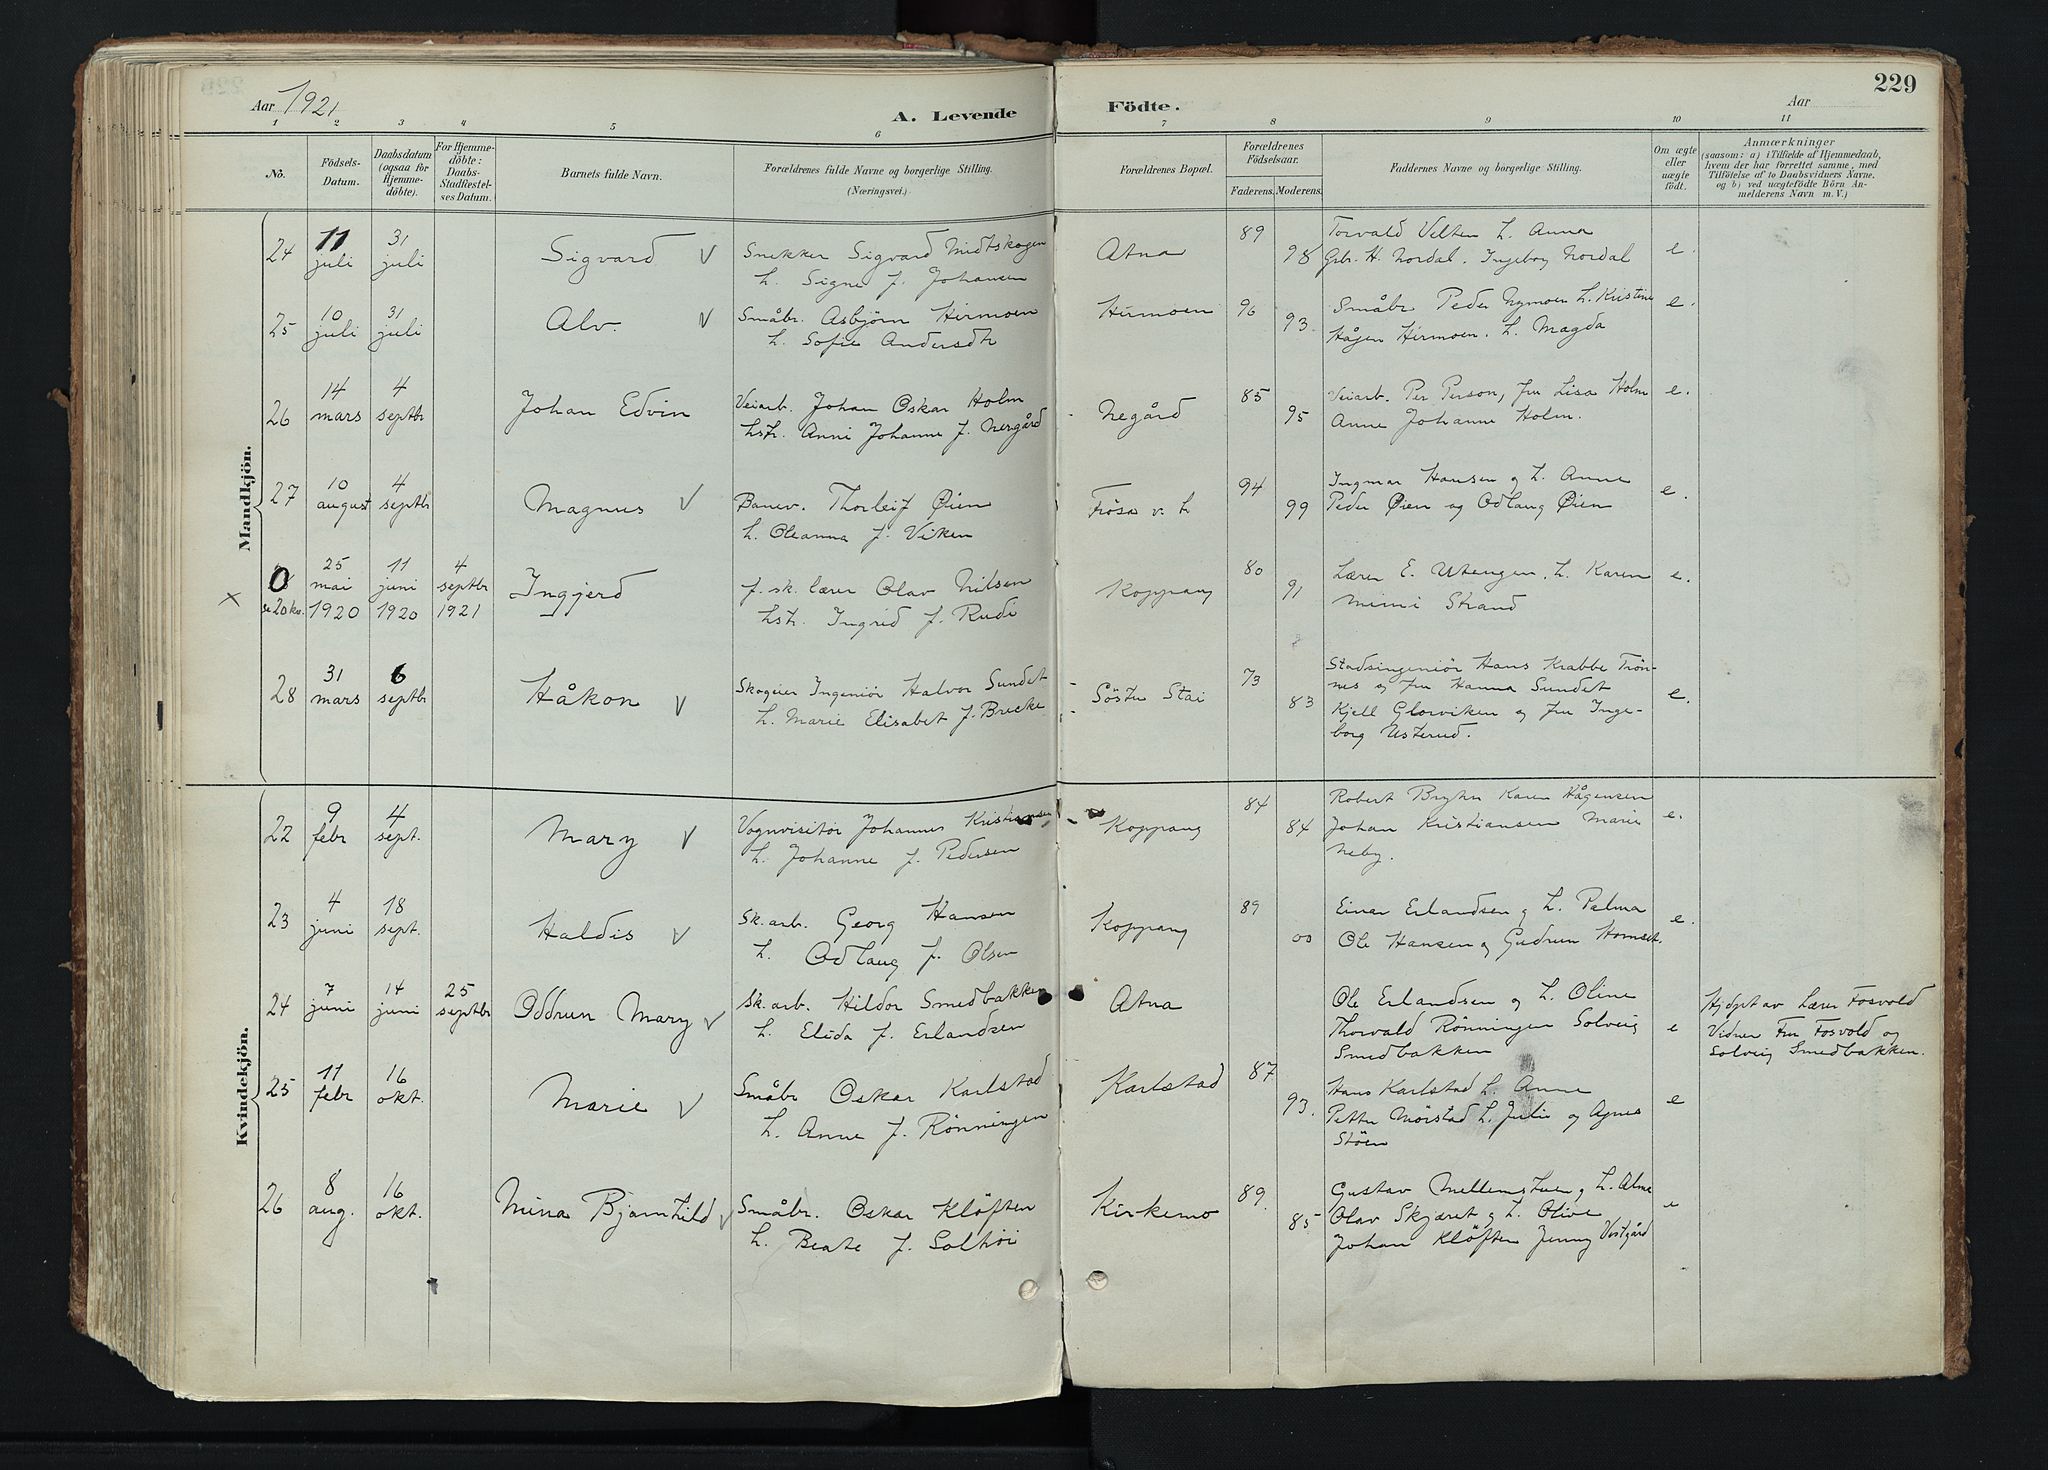 229
Aar 1921
A. Levende
Födte.
Aar
1 2 3 4 5 6 7 8 9 10 11
No.
Födsels-
Datum.
Daabsdatum
(ogsaa for
Hjemme-
döbte).
For Hjemme-
döbte:
Daabs-
Stadfestel-
ses Datum.
Barnets fulde Navn.
Forældrenes fulde Navne og borgerlige Stilling.
(Næringsvei.)
Forældrenes Bopæl.
Forældrenes
Födselsaar.
Faderens. Moderens.
Faddernes Navne og borgerlige Stilling.
Om ægte
eller
uægte
födt.
Anmærkninger
(saasom: a) i Tilfælde af Hjemmedaab,
hvem der har forrettet samme, med
Tilföielse af to Daabsvidners Navne,
og b) ved uægtefödte Börn An-
melderens Navn m. V.)
Mandkjön.
24
11
juli
31
juli
Sigvard V
Snekker Sigvard Midtskogen
h. Signe f. Johansen
Atna
89
98
Torvald Velten h. Anna
Grbr. H. Nordal. Ingeborg Nordal
e.
25
10
juli
31
juli
Alv. V
Småbr. Asbjörn Hirmoen
h. Sofie Andersdtr
Hirmoen
96
93
Småbr Peder Nymoen h. Kristine
Hågen Hirmoen. h. Magda
e.
26
14
mars
4
septbr
Johan Edvin
Veiarb. Johan Oskar Holm
hstr. Anni Johanne f. Nergård
Negård
85
95
Veiarb. Per Person, fru Lisa Holm
Anne Johanne Holm.
e.
27
10
august
4
septbr
Magnus V
Banev. Thorleif Øien
h. Oleanna f. Viken
94
99
Ingmar Hansen og h. Anne
Peder Øien og Odlaug Øien
e.
x
0
se 20 kv.
25
mai
1920
11
juni
1920
4
septbr
1921
Ingjerd
f. sk. lærer Olav Nilsen
hstr. Ingrid f. Rudi
Koppang
80
91
Lærer E. Utengen, h. Karen
Mimi Strand
e.
28
31
mars
6
septbr
Håkon V
Skogeier Ingeniör Halvor Sundet
h. Marie Elisabet f. Brecke
Söstu Stai
73
83
Stadsingeniör Hans Krabbe Trön-
nes og fru Hanna Sundet
Kjell Glorviken og fru Inge-
borg Usterud.
e.
Kvindekjön.
22
9
febr
4
sept.
Mary V
Vognvisitör Johannes Kristiansen
h. Johanne f. Pedersen
Koppang
84
84
Robert Bryhn Karen Hågensen
Johan Kristiansen Marie
Neby.
e.
23
4
juni
18
sept.
Haldis V
Sk. arb. Georg Hansen
h. Odlaug f. Olsen
Koppang
89
00
Einar Erlandsen og h. Palma
Ole Hansen og Gudrun Homset.
e.
24
7
juni
14
juni
25
septbr
Oddrun Mary V
Sk. arb. Hildor Smedbakken
h. Elida f. Erlandsen
Atna
Ole Erlandsen og h. Oline
Thorvald Rönningen Solveig
Smedbakken
e
Hjdpt av Lærer Fosvold
Vidner Fru Fosvold og
Solveig Smedbakken.
25
11
febr
16
okt.
Marie V
Småbr Oskar Karlstad
h. Anne f. Rönningen
Karlstad
87
93.
Hans Karlstad h. Anne
Petter Mörstad h. Julie og Agnes
Stöen
e
26
8
aug.
16
okt.
Mina Bjarnhild V
Småbr. Oskar Klöften
h. Beate f. Solhöi
Kirkemo
89.
85
Gustav Mellemstuen og h. Alma
Olav Skjæret og h. Olive
Johan Klöften Jenny Vestgård
e